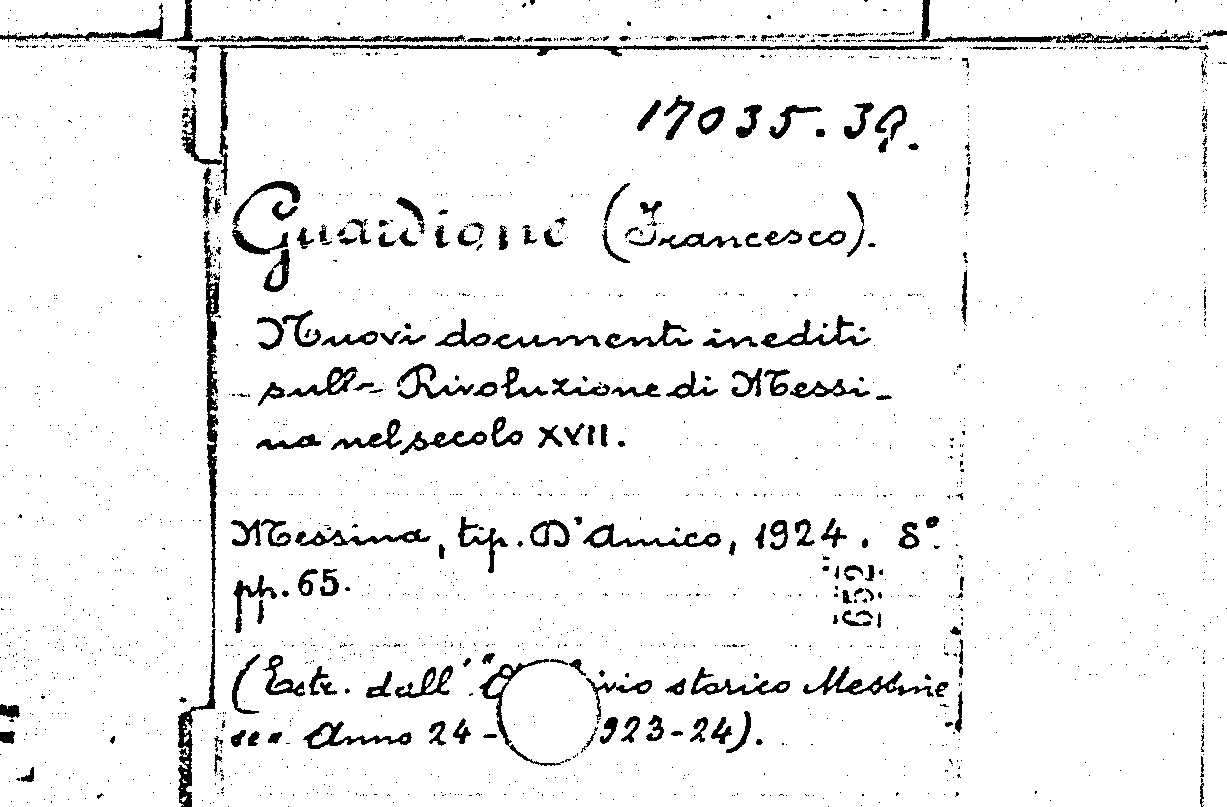 17035.39.
Guardione (Francesco).
Nuovi documenti inediti
sulla Rivoluzione di Messi-
na nel secolo XVII.
Messina, tip. D'Amico, 1924. 8°.
pp. 65.
652
(Estr. dall' " storico Messine
se" Anno 24 - 923-24).